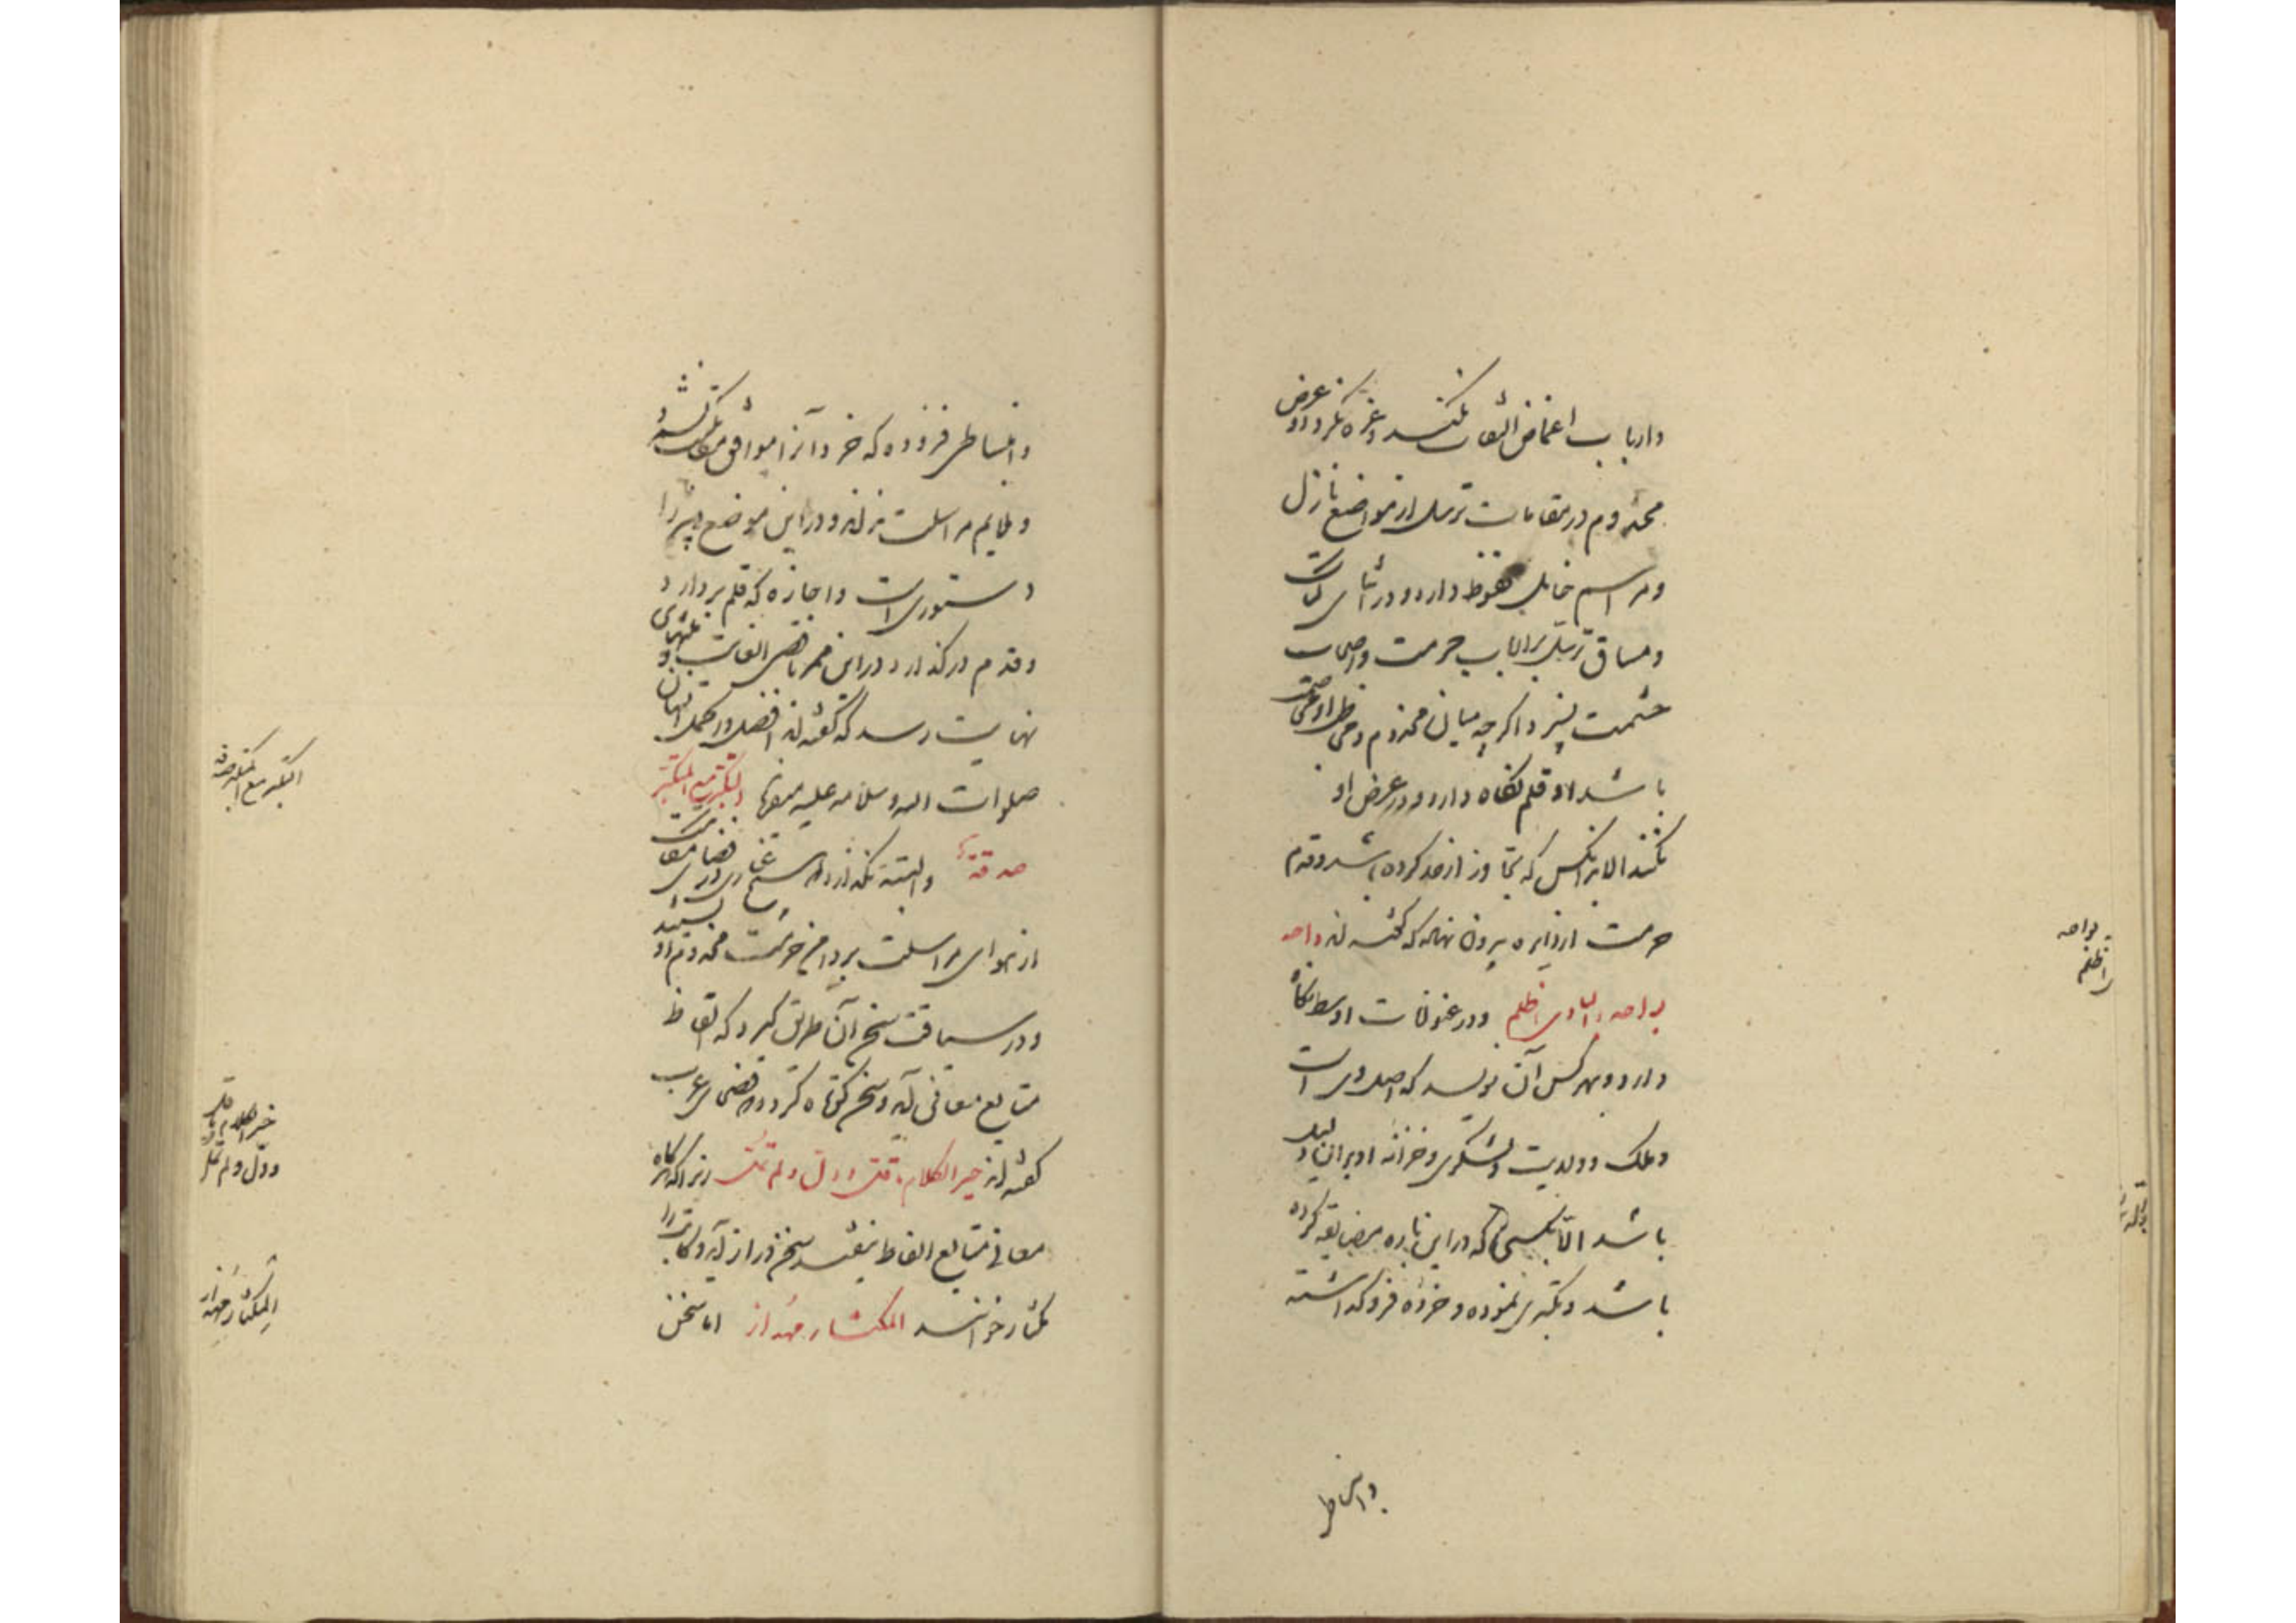 وارباب اغماض التفات نکند وغره نگردد و عرض
مخدوم در مقامات ترسل از مواضع نازل
ومراسم خامل محفوظ دارد و در اثنای کتابت
ومساق ترسل بر ارباب حرمت واصحاب
حشمت نستیزد اگر چه میان مخدوم و
باشد او قلم نگاه دارد و در عرض او
نکند الا بدانکس که تجاوز از حد کرده باشد وقدم
حرمت از دایره بیرون نهاده که گفته اند واحدة
بواحدة والبادی اظلم ودر عنوانات اوسط نگاه
دارد و بهر کس آن نویسد که اصل وی است
وملک و ولایت و لشکری و خزانه او بر آن دلیل
باشد الا بکسی که در این باره مضایقه کرده
باشد و تکبری نموده و خرده فرو گذاشته
وانبساطی
وانبساطی فزوده که خرد آنرا موافق مکاتبت نشمرد
وملایم مراسلت نداند و در این موضع دبیر را
دستوری است و اجازه که قلم بردارد
وقدم در گذارد و در این ممر باقصی الغایت و منتهای
نهایت برسد که گفته اند افضل و اکمل انسان
صلوات الله وسلامه علیه میفرماید التکبر مع المتکبر
صدقة والبته نگذارد که هیچ غباری در فضای مکاتبت
از هوای مراسلت بر دامن حرمت مخدوم او بنشیند
ودر سیاقت سخن آن طریق گیرد که الفاظ
متابع معانی آید و سخن کوتاه گردد که فصحای عرب
گفته اند خیر الکلام ما قل و دل و لم یمل زیرا که هرگاه
معانی متابع الفاظ بیفتد سخن دراز آید و کاتب را
مکثار خوانند المکثار مهذار اما سخن
بواحدة
اظلم
التکبر مع المتکبر صدقة
خیر الکلام ما قل
ودل و لم یمل
المکثار مهذار